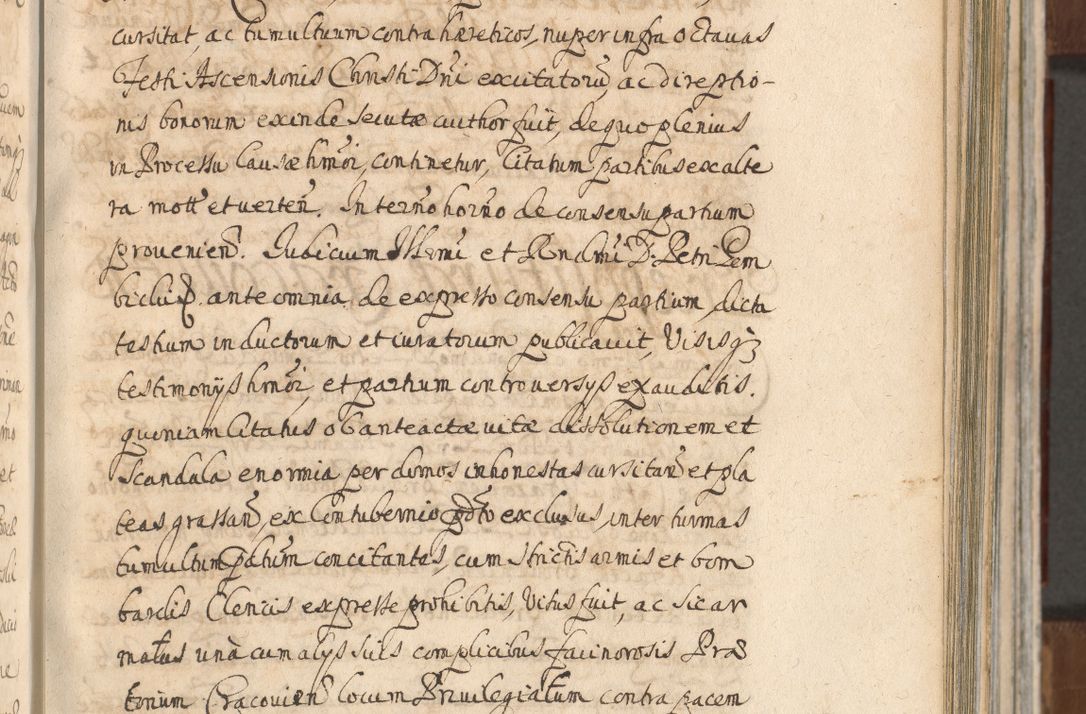 cursitat, ac tumultuum contra hæreticos, nuper infra octauas
Festi Ascensionis Christi Dñi excitatorũ, ac direptio-
nis bonorum exinde secutæ author fuit, de quo plenius
in Processu Causæ hm̃oi, continetur, Citatum partibus ex alte
ra mott̃ et verteñ. In terño horño de consensu partium
prouenieñ. Iudicium Illmi et Rndmi D. Petri Gem
biclij. ante omnia de expresso consensu partium dicta
testium inductorum et iuratorum publicauit, Visisq;
testimonijs hm̃oi, et partium controuersijs exauditis.
quoniam Citatus ob anteactæ vitæ dissolutionem et
scandala enormia per domos inhonestas cursitañ et pla
teas grassañ, ex Contubernio pd̃cto exclusus, inter turmas
tumultum concitantes, cum strictis armis et bom
bardis Clericis expresse prohibitis, Visus fuit, ac sic ar
matus unà cum alijs suis complicibus facinorosis Præ
torium Cracouieñ locum Priuilegiatum contra pacem